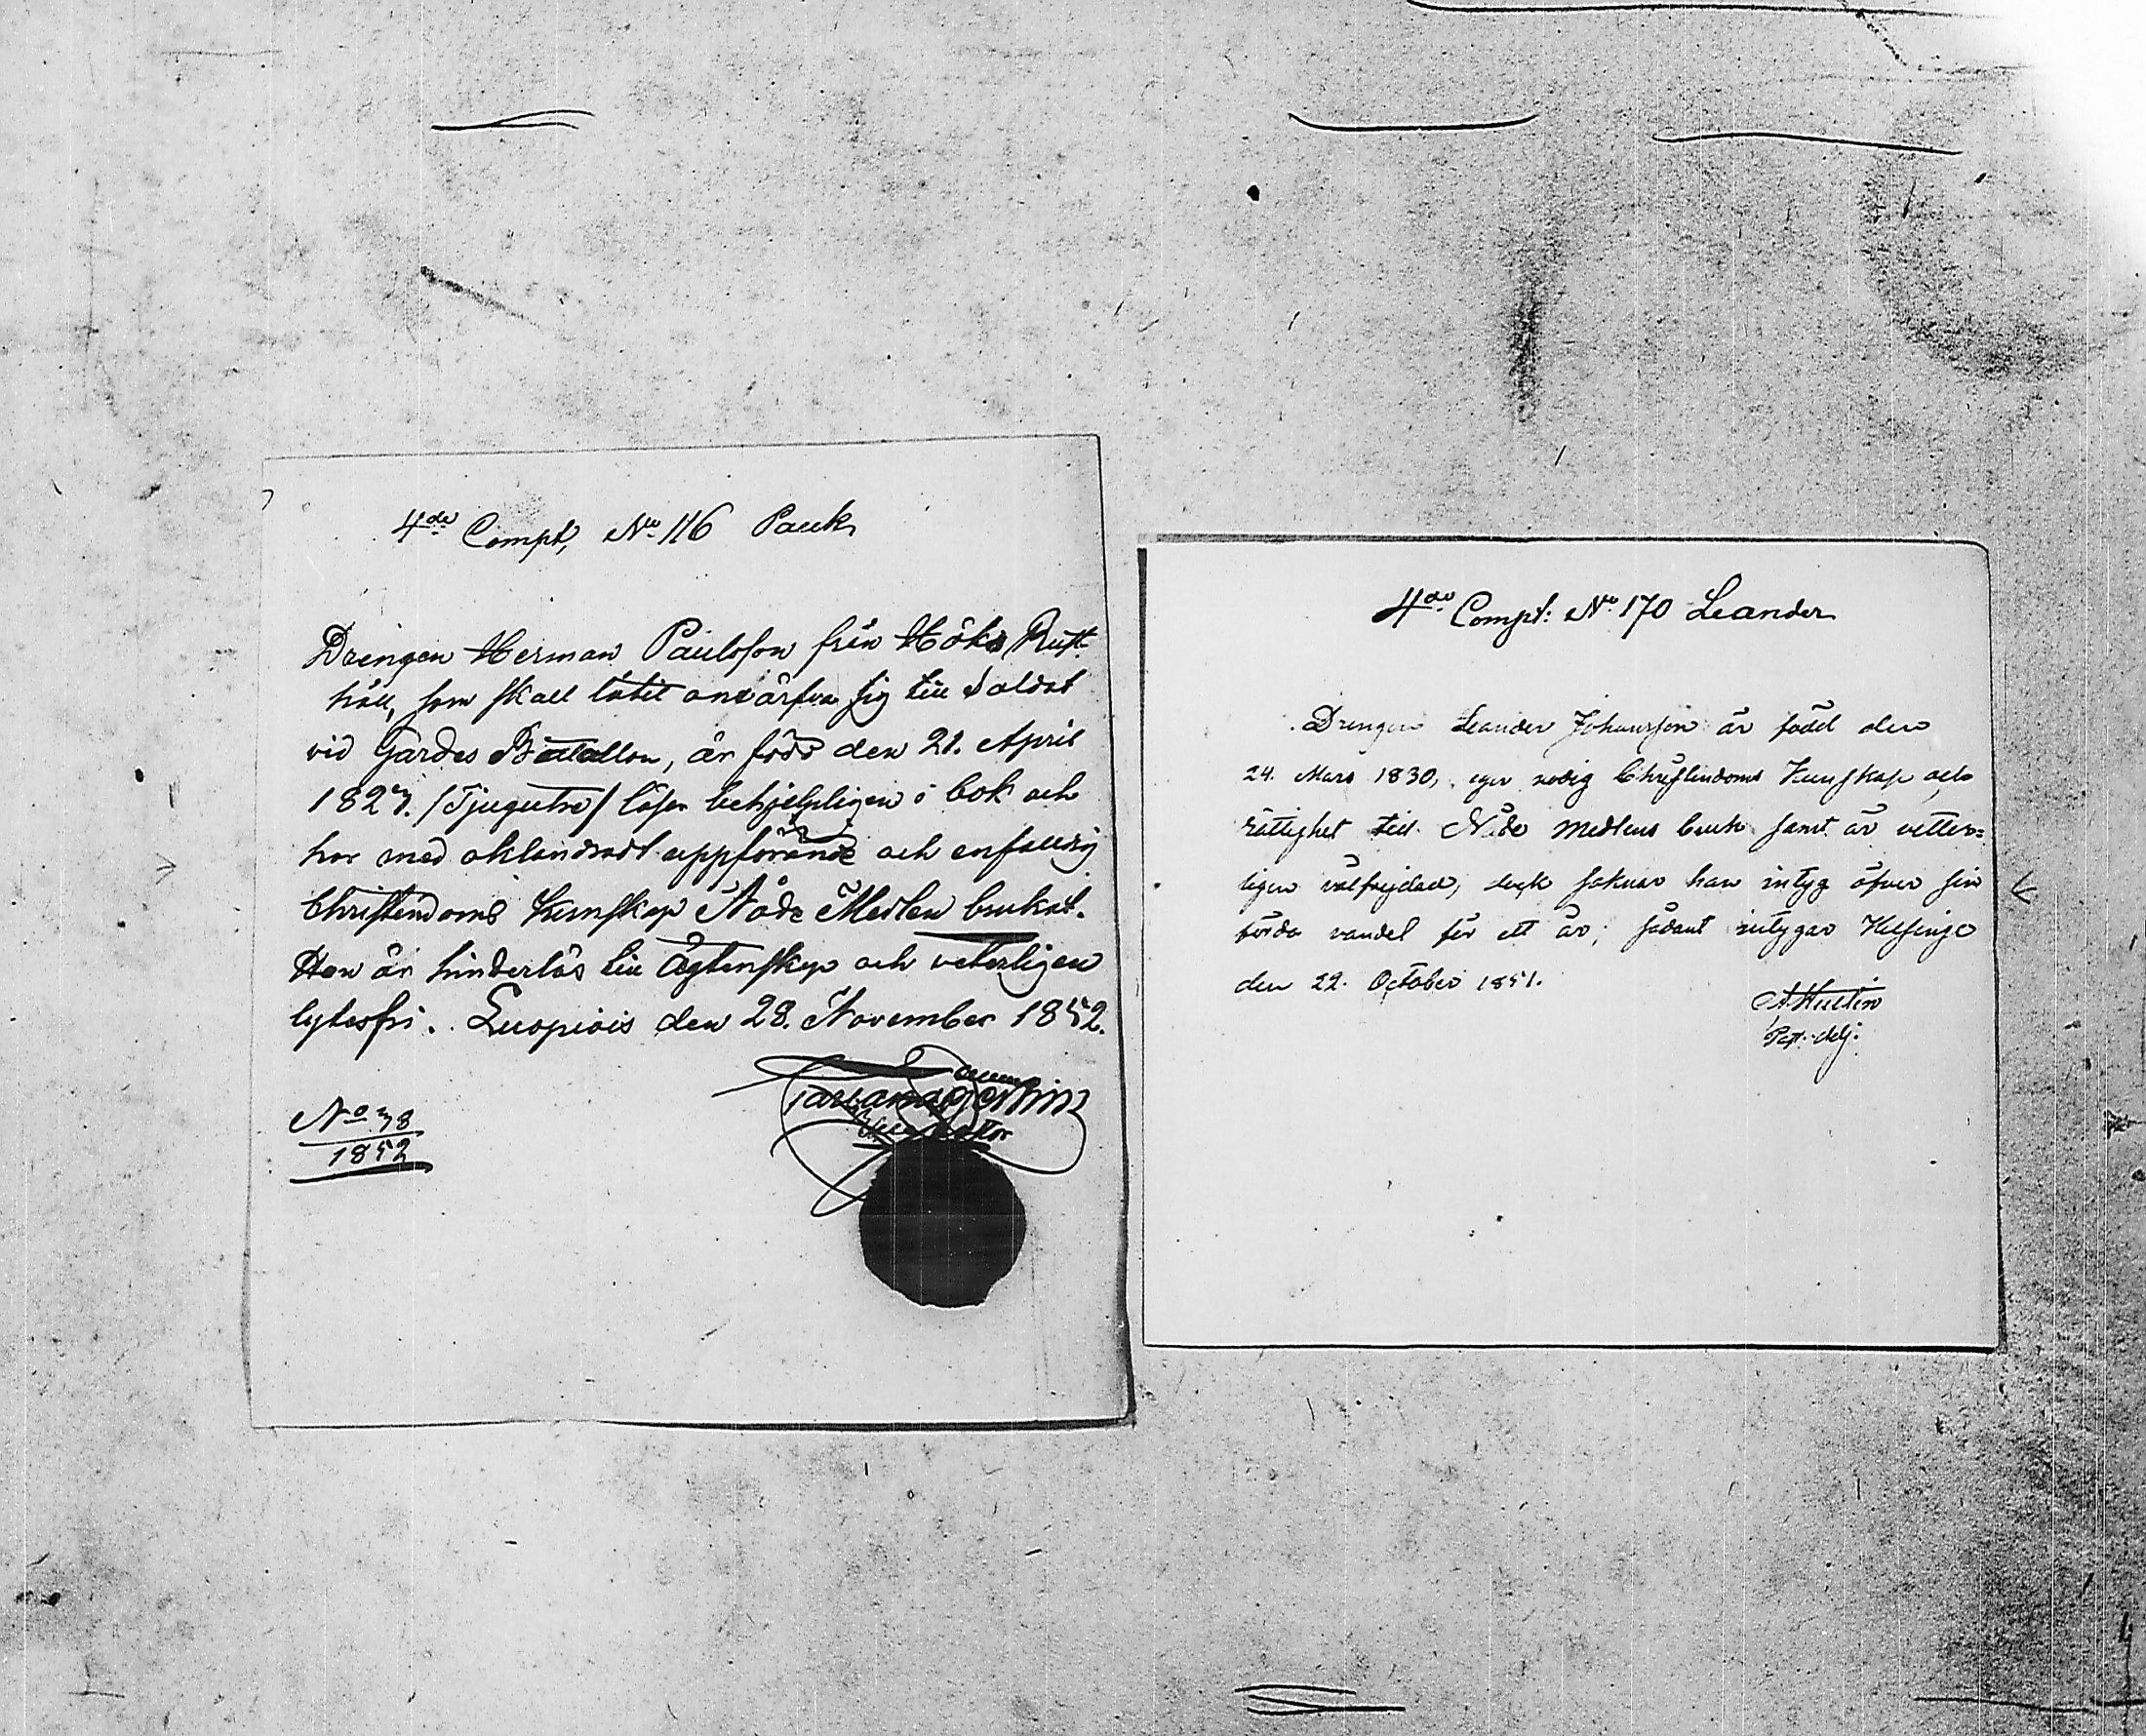 4de Compt, No 116 Pauk
Drengen Herman Paulsson från Höks Rust-
håll, som skall låtit anvärfva sig till Soldat
vid Gardes Bataillon, är född den 21. April
1823. /Tjugutre/ läser behjelpligen i bok och
har med oklandradt uppförande och enfaldig
Christendoms kunskap Nåde Medlen brukat.
Han är hinderlös till Ägtenskap och veterligen
lytesfri. Luopiois den 28. November 1852.
No 38
1852
4de Compt: No 170 Leander
Drengen Leander Johansson är född den
24. Mars 1830, eger nödig Christendoms Kunskap och
rättighet till Nåde Medlens bruk samt är vetter=
ligen välfrejdad, dock saknar han intyg öfver sin
förda vandel för ett år; sådant intygar Helsinge
den 22. October 1851.
A. Hultin
Past. adj.